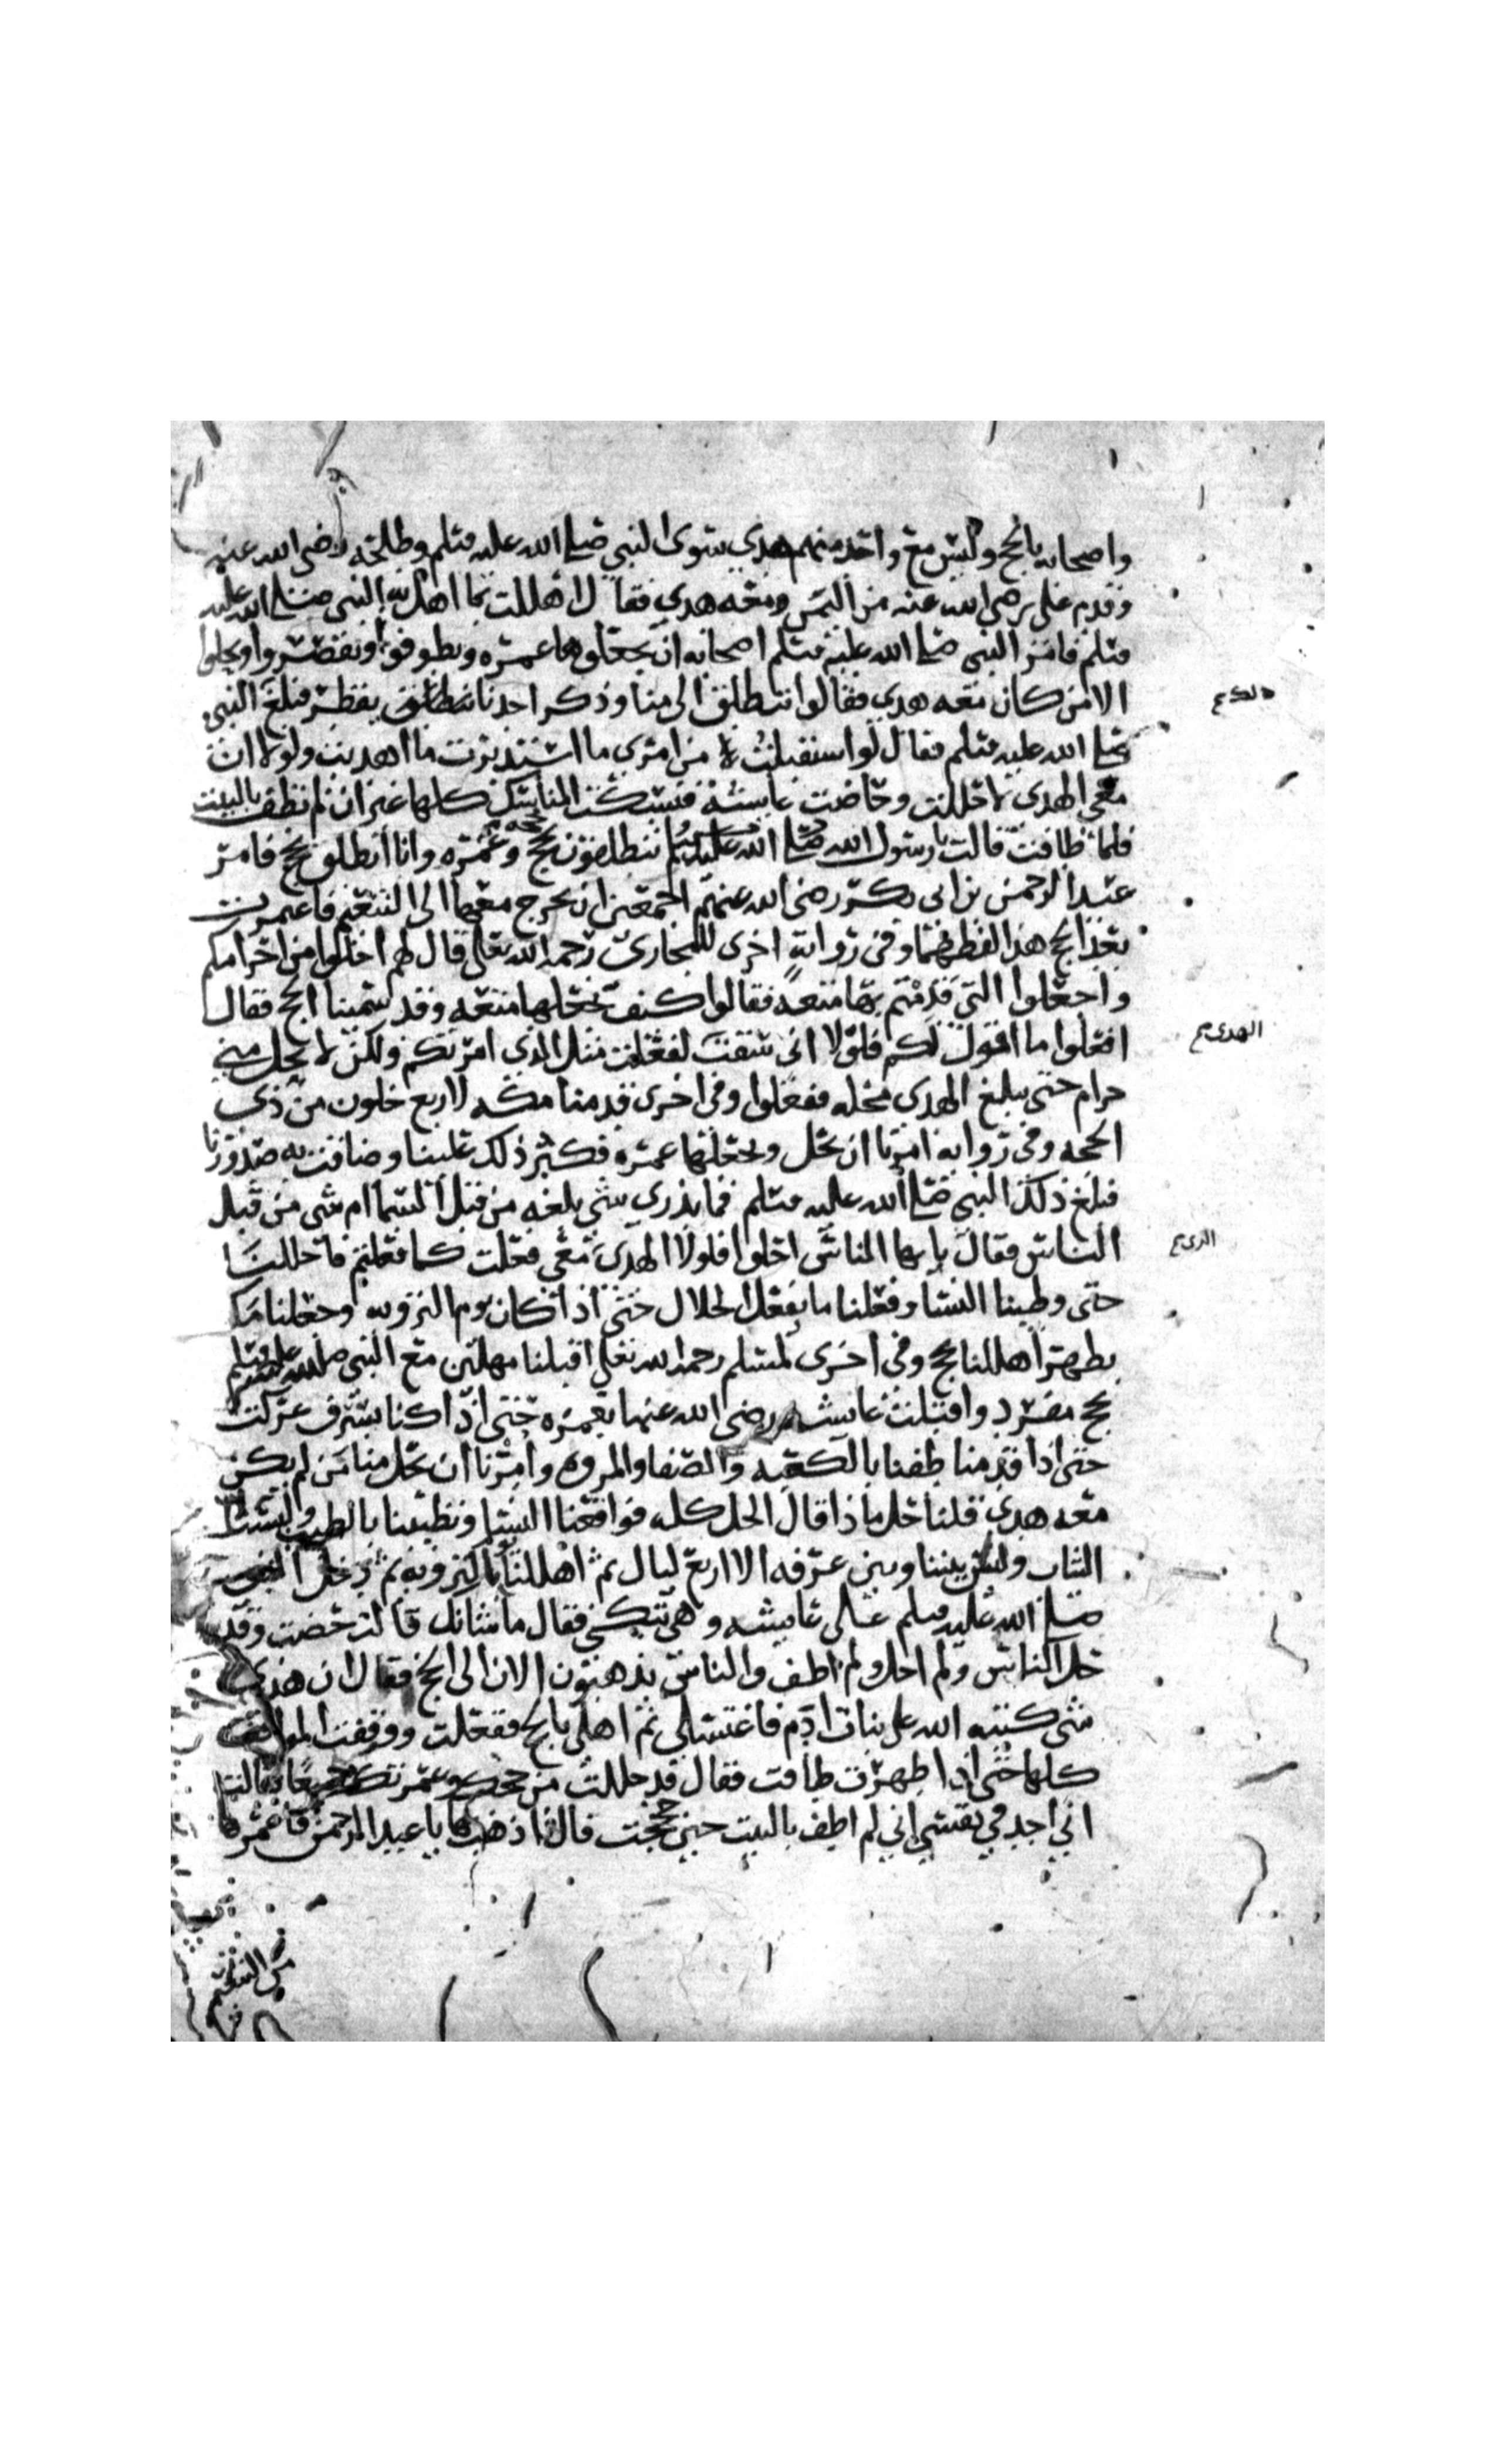 واصحابه بالحج وليس مع واحد منهم هدي سوى النبي صلى الله عليه وسلم وطلحه رضي الله عنه
وقدم علي رضي الله عنه من اليمن ومعه هدي فقال اهللت بما اهل به النبي صلى الله عليه
وسلم فامر النبي صلى الله عليه وسلم اصحابه ان يجعلوها عمره ويطوفوا ويقصروا ويحلوا
الا من كان معه هدي فقالوا ننطلق الى منا وذكر احدنا يقطر فبلغ النبي
صلى الله عليه وسلم فقال لو استقبلت من امري ما استدبرت ما اهديت ولولا ان
معي الهدي لاحللت وحاضت عايشه فنسكت المناسك كلها غير ان لم تطف بالبيت
فلما طافت قالت يا رسول الله صلى الله عليه وسلم تنطلقون بحجه وعمره وانا انطلق بحج فامر
عبد الرحمن بن ابي بكر رضي الله عنهم اجمعين ان يخرج معها الى التنعيم فاعتمرت
بعد الحج هذا لفظهما وفي روايه اخرى للبخاري رحمه الله تعالى قال لهم احلوا من احرامكم
واجعلوا التي قدمتم بها متعه فقالوا كيف نجعلها متعه وقد سمينا الحج فقال
افعلوا ما اقول لكم فلولا اني سقت لفعلت مثل الذي امرتكم ولكن لا يحل مني
حرام حتى يبلغ الهدي محله ففعلوا وفي اخرى قدمنا مكه لاربع خلون من ذي
الحجه وفي روايه امرنا ان نحل ونجعلها عمره فكبر ذلك علينا وضاقت به صدورنا
فبلغ ذلك النبي صلى الله عليه وسلم فما ندري شي بلغه من قبل السما ام شي من قبل
الناس فقال يا ايها الناس احلوا فلولا الهدي معي فعلت كما فعلتم فاحللنا
حتى وطينا النسا وفعلنا ما يفعل الحلال حتى اذا كان يوم الترويه وجعلنا مكه
بظهر اهللنا بالحج وفي اخرى لمسلم رحمه الله تعالى اقبلنا مهلين مع النبي صلى الله عليه وسلم
بحج مفرد واقبلت عايشه رضي الله عنها بعمره حتى اذا كنا بسرف عركت
حتى اذا قدمنا طفنا بالكعبه والصفا والمروه وامرنا ان نحل منا من لم يكن
معه هدي قلنا حل ماذا قال الحل كله فواقعنا النسا وتطيبنا بالطيب ولبسنا
الثياب وليس بيننا وبين عرفه الا اربع ليال ثم اهللنا بالترويه ثم دخل النبي
صلى الله عليه وسلم على عايشه وهي تبكي فقال ما شانك قالت حضت وقد
حل الناس ولم احل ولم اطف والناس يذهبون الان الى الحج فقال ان هذي
شي كتبه الله على بنات ادم فاغتسلي ثم اهلي بالحج ففعلت ووقفت المواقف
كلها حتى اذا طهرت طافت فقال قد حللت من حجك وعمرتك جميعا فقالت
اني اجد في نفسي اني لم اطف بالبيت حين حججت قال اذهب بها يا عبد الرحمن فاعمرها
الهدي